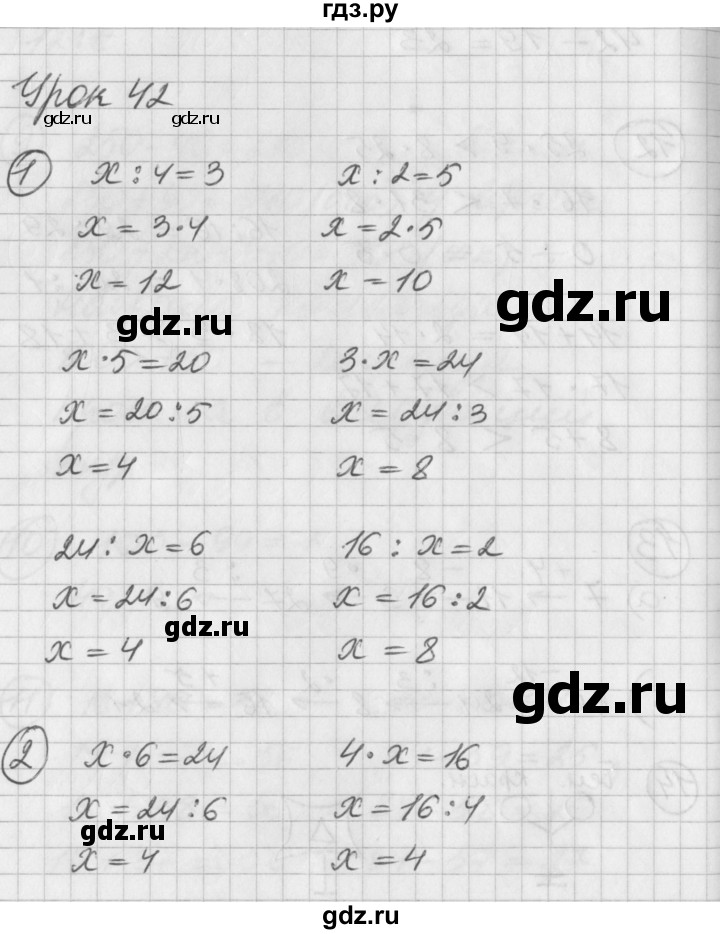 гдз.ру
Урок 42
gdz.ru gdz.ru
1 x : 4 = 3 x : 2 = 5
x = 3 · 4 x = 2 · 5
x = 12 x = 10
gdz.ru gdz.ru
x · 5 = 20 3 · x = 24
x = 20 : 5 x = 24 : 3
x = 4 x = 8
24 : x = 6 16 : x = 2
x = 24 : 6 x = 16 : 2
gdz.ru
x = 4 x = 8
gdz.ru
2 x · 6 = 24 4 · x = 16
x = 24 : 6 x = 16 : 4
gdz.ru
x = 4 x = 4
gdz.ru